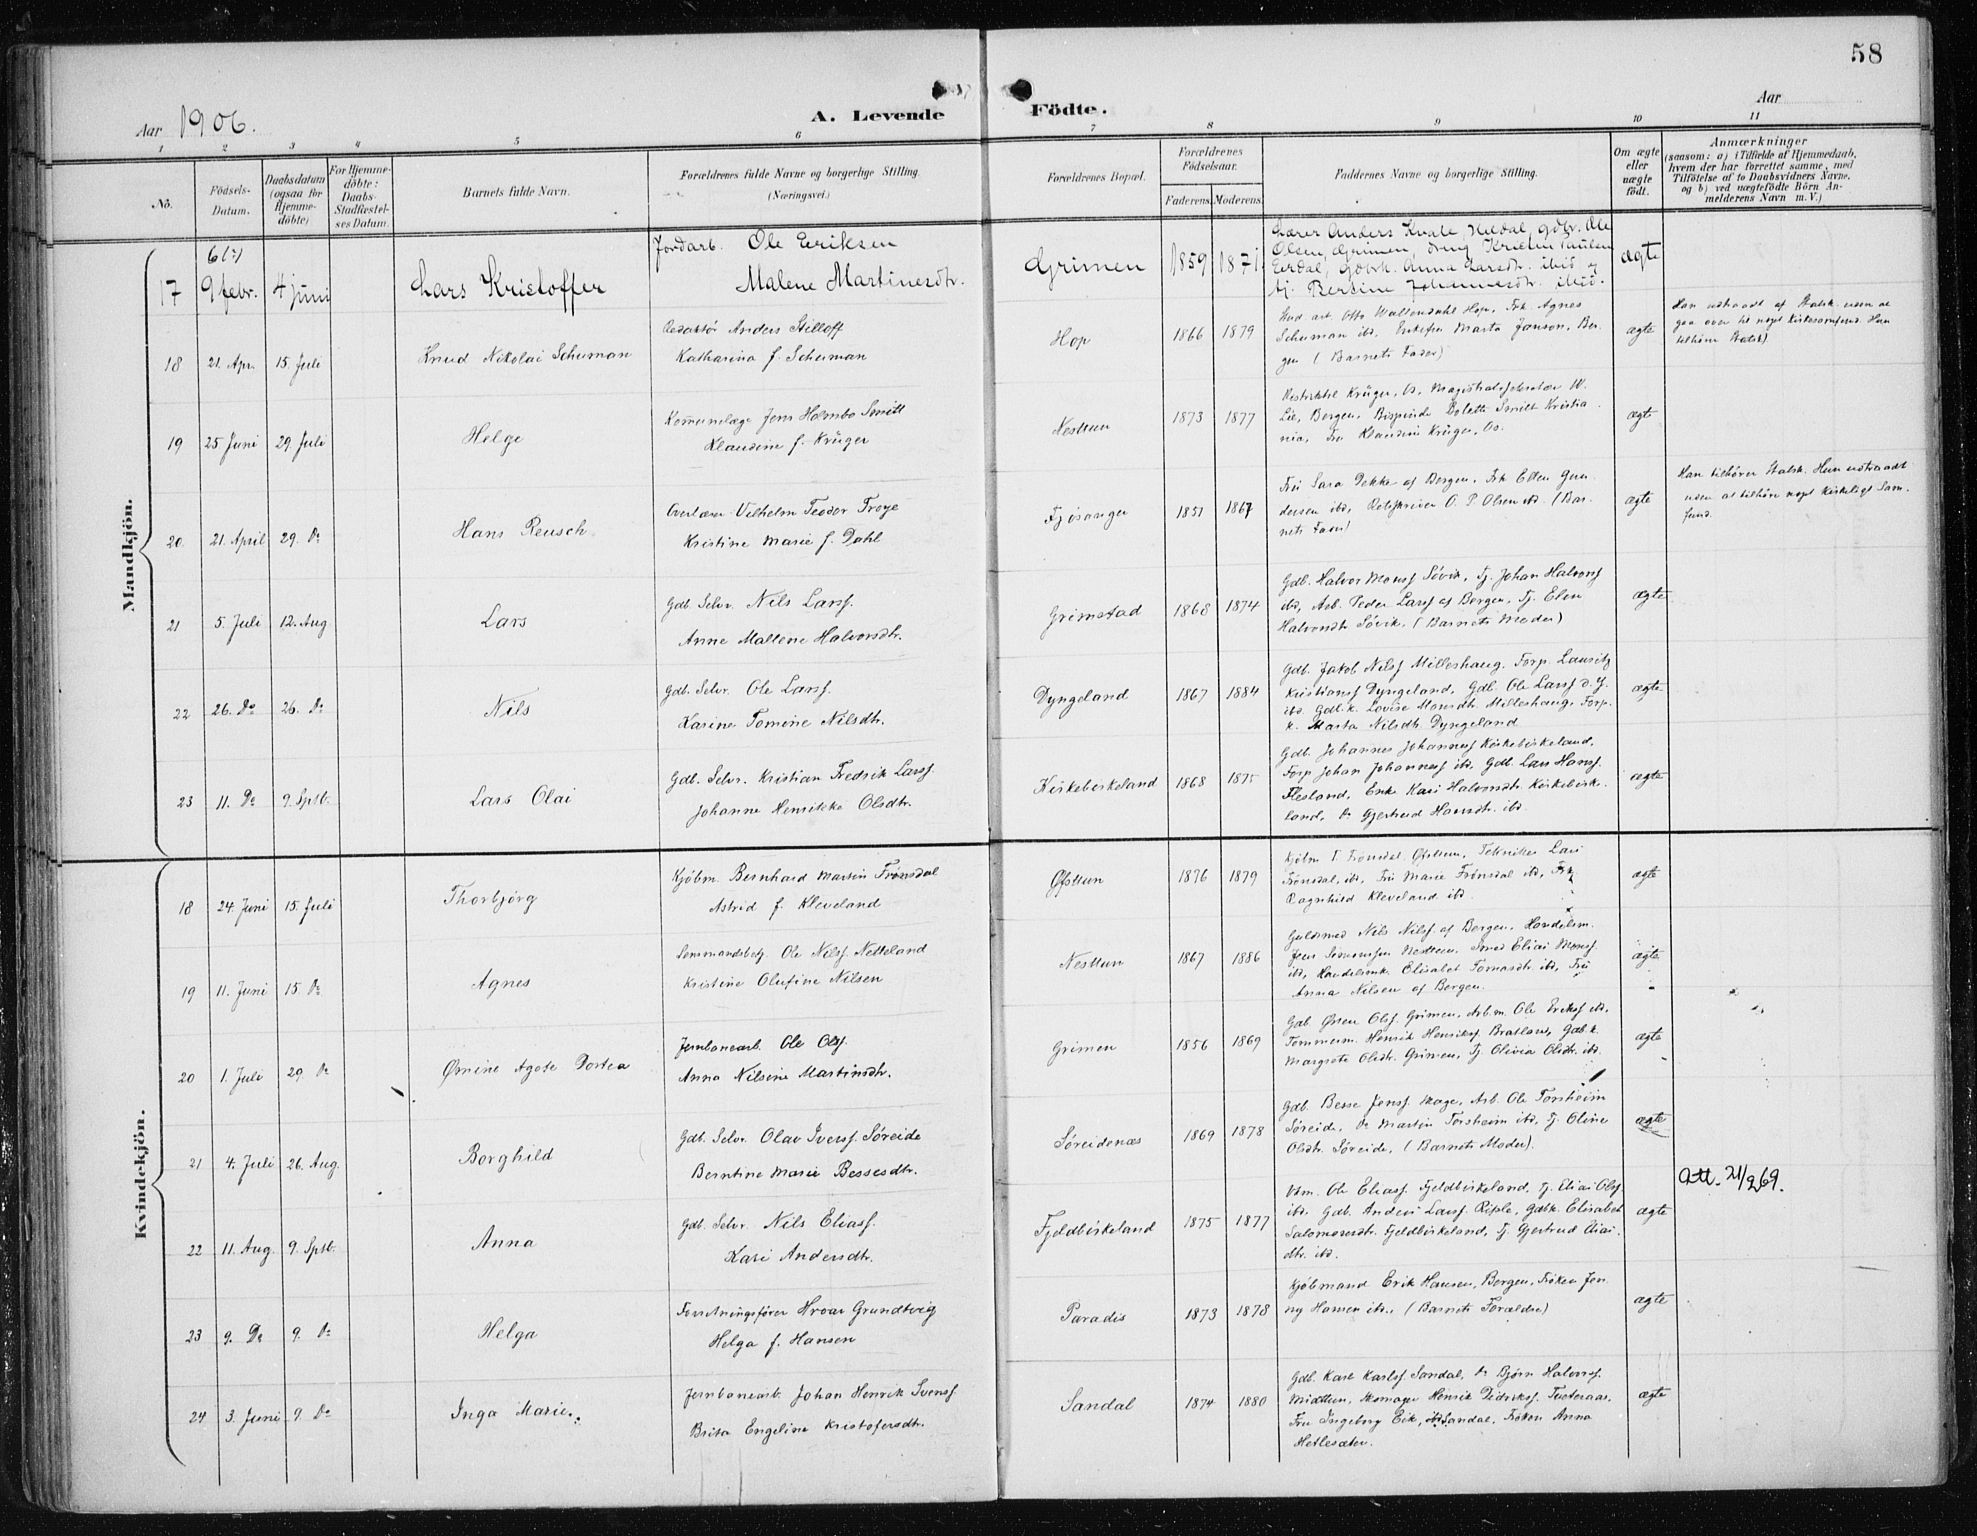 58
Aar 1906.
A. Levende Födte.
Aar
1 2 3 4 5 6 7 8 9 10 11
No.
Födsels-Datum.
Daabsdatum (ogsaa for Hjemme-döbte)
For Hjemme-döbte: Daabs-Stadfæstel-ses Datum.
Barnets fulde Navn.
Forældrenes fulde Navne og borgerlige Stilling. (Næringsvei.)
Forældrenes Bopæl.
Forældrenes Födselsaar.
Faderens. Moderens.
Faddernes Navne og borgerlige Stilling.
Om ægte eller uægte födt.
Anmærkninger
(saasom: a) i Tilfælde af Hjemmedaab,
hvem der har forrettet samme, med
Tilföielse af to Daabsvidners Navne,
og b) ved uægtefödte Börn An-
melderens Navn m. V.)
Mandkjön.
6(?)
17 9 febr. 4 juni Lars Kristoffer
Jordarb. Ole Eriksen
Malene Martinesdtr.
Grimen 1859 1871
Lærer Anders Kvale, Heldal, gdbr. Ole
Olsen, Grimen, dreng Kristen Paulsen
Eerdal, gdbrk. Anna Larsdtr. ibid og
tj. Bertine Johannesdtr. ibid.
ægte
18 21. Apr. 15. Juli Knud Nikolai Schuman
Redaktör Anders Stilloff
Katharina f. Schuman
Hop 1866 1879
Otto Wallendahl Hop, Frk. Agnes
Schuman ibd, Enkefru Marta Janson, Ber-
gen (Barnets Fader)
ægte
Han udtraadt af Statsk. uden at
gaa over til noget Kirkesamfund. Hun
tilhører Statsk)
19 25 Juni 29. Juli Helge
Komunelæge Jens Holmbo Smitt
Klaudine f. Krüger
Nesttun 1873 1877
Krüger, Do, Magistratssekretær W.
Lie, Bergen, Bispinde Bolette Smitt Kristia-
nia, Fru Klaudine Krüger, Do.
ægte
20 21. April 29. Do Hans Reusch
Overlærer Vilhelm Teodor Troye
Kristine Marie f. Dahl
Fjøsanger 1851 1867
Fru Sara Dekke af Bergen, Frk Ellen Gun-
dersen ibd, O. P. Olsen ibd. (Bar-
nets Fader)
ægte
Han tilhører Statsk. Hun udtraadt
uden at tilhøre noget Kirkeligt Sam-
fund.
21 5. Juli 12. Aug Lars
Gdb. Selv. Nils Larss.
Anne Mallene Halvorsdtr.
Grimstad 1868 1874
Gdb. Halvor Monss Søvik, Tj. Johan Halvorss
ibd, Arb. Peder Larss af Bergen, Tj. Elen
Halvorsdtr Søvik. (Barnets Moder)
ægte
22 26. Do 26. Do Nils
Gdb. Selv. Ole Larss.
Karine Tomine Nilsdtr.
Dyngeland 1867 1884
Gdb. Jakob Nilss Milleshaug, Forp. Lauritz
Kristianss Dyngeland, Gdb. Ole Larss d. y.
ibd. Gdb.k. Lovise Monsdtr. Milleshaug, Forp.
k. Marta Nilsdtr. Dyngeland
ægte
23 11. Do 9. Sptb. Lars Olai
Gdb. Selv. Kristian Fredrik Larss.
Johanne Henrikke Olsdtr.
Kirkebirkeland 1868 1875
Gdb. Johannes Johanness Kirkebirkeland,
Forp. Johan Johanness ibd, Gdb. Lars Hanss.
Flesland, Enke Kari Halvorsdtr. Kirkebirke-
land, Do Gjertrud Hansdtr. ibd.
ægte
Kvindekjön.
18 24. Juni 15. Juli Thorbjørg
Kjøbm. Bernhard Martin Frønsdal
Astrid f. Kleveland
Øvsttun 1876 1879
Kjøbm T. Frønsdal, Øvsttun, Tekniker Lars
Frønsdal, ibd, Fru Marie Frønsdal ibd, Frk
Ragnhild Kleveland ibd.
ægte
19 11. Juni 15. Do Agnes
Ole Nilss. Netteland
Kristine Olufine Nilsen
Nesttun 1867 1886
Guldsmed Nils Nilss. af Bergen, Handelsm.
Jens Simonsen Nesttun, Smed Eliai Monss.
ibd, Handelsmk. Elisabet Tomasdtr ibd, Fru
Anna Nilsen af Bergen.
ægte
20 1. Juli 29. Do Ømine Agate Dortea
Jernbanearb. Ole Olss.
Anna Nilsine Martinsdtr.
Grimen 1856 1869
Gdb. Østen Olss. Grimen, Arb.m. Ole Erikss ibd,
Tømmerm. Henrik Henrikss Bratland, Gdb.k.
Margrete Olsdtr. Grimen, Tj. Olivia Olsdtr. ibd.
ægte
21 4. Juli 26. Aug. Borghild
Gdb. Selv. Olav Iverss. Søreide
Berntine Marie Bessesdtr.
Søreidenæs 1869 1878
Gdb. Besse Jenss. Skage, Arb. Ole Torsheim
Søreide, Do Martin Torsheim ibd, Tj. Oline
Olsdtr. Søreide, (Barnets Moder).
ægte
22 11. Aug. 9. Sptb. Anna
Gdb. Selv. Nils Eliass.
Kari Andersdtr.
Fjeldbirkeland 1875 1877
Ole Eliass. Fjeldbirkeland, Tj. Eliai Olss
ibd. Gdb. Anders Larss. Riple, Gdbk. Elisabet
Salomonsdtr. Fjeldbirkeland, Tj. Gjertrud Eliai-
dtr. ibd.
ægte
Att. 21/2 69.
23 9. Do 9. Do Helga
Forretningsfører Hroar Grundtvig
Helga f. Hansen
Paradis 1873 1878
Kjøbmand Erik Hansen, Bergen, Frøken Jen-
ny Hansen ibd., (Barnets Forældre)
ægte
24 3. Juni 9. Do Inga Marie
Jernbanearb. Johan Henrik Svenss.
Brita Engeline Kristofersdtr.
Sandal 1874 1880
Gdb. Karl Karlss. Sandal, Do Bjørn Halvorss.
Midttun, Skomager Henrik Didrikss. Tveteraas,
Fru Ingeborg Eik, Sandal, Frøken Anna
Hetlesæter.
ægte